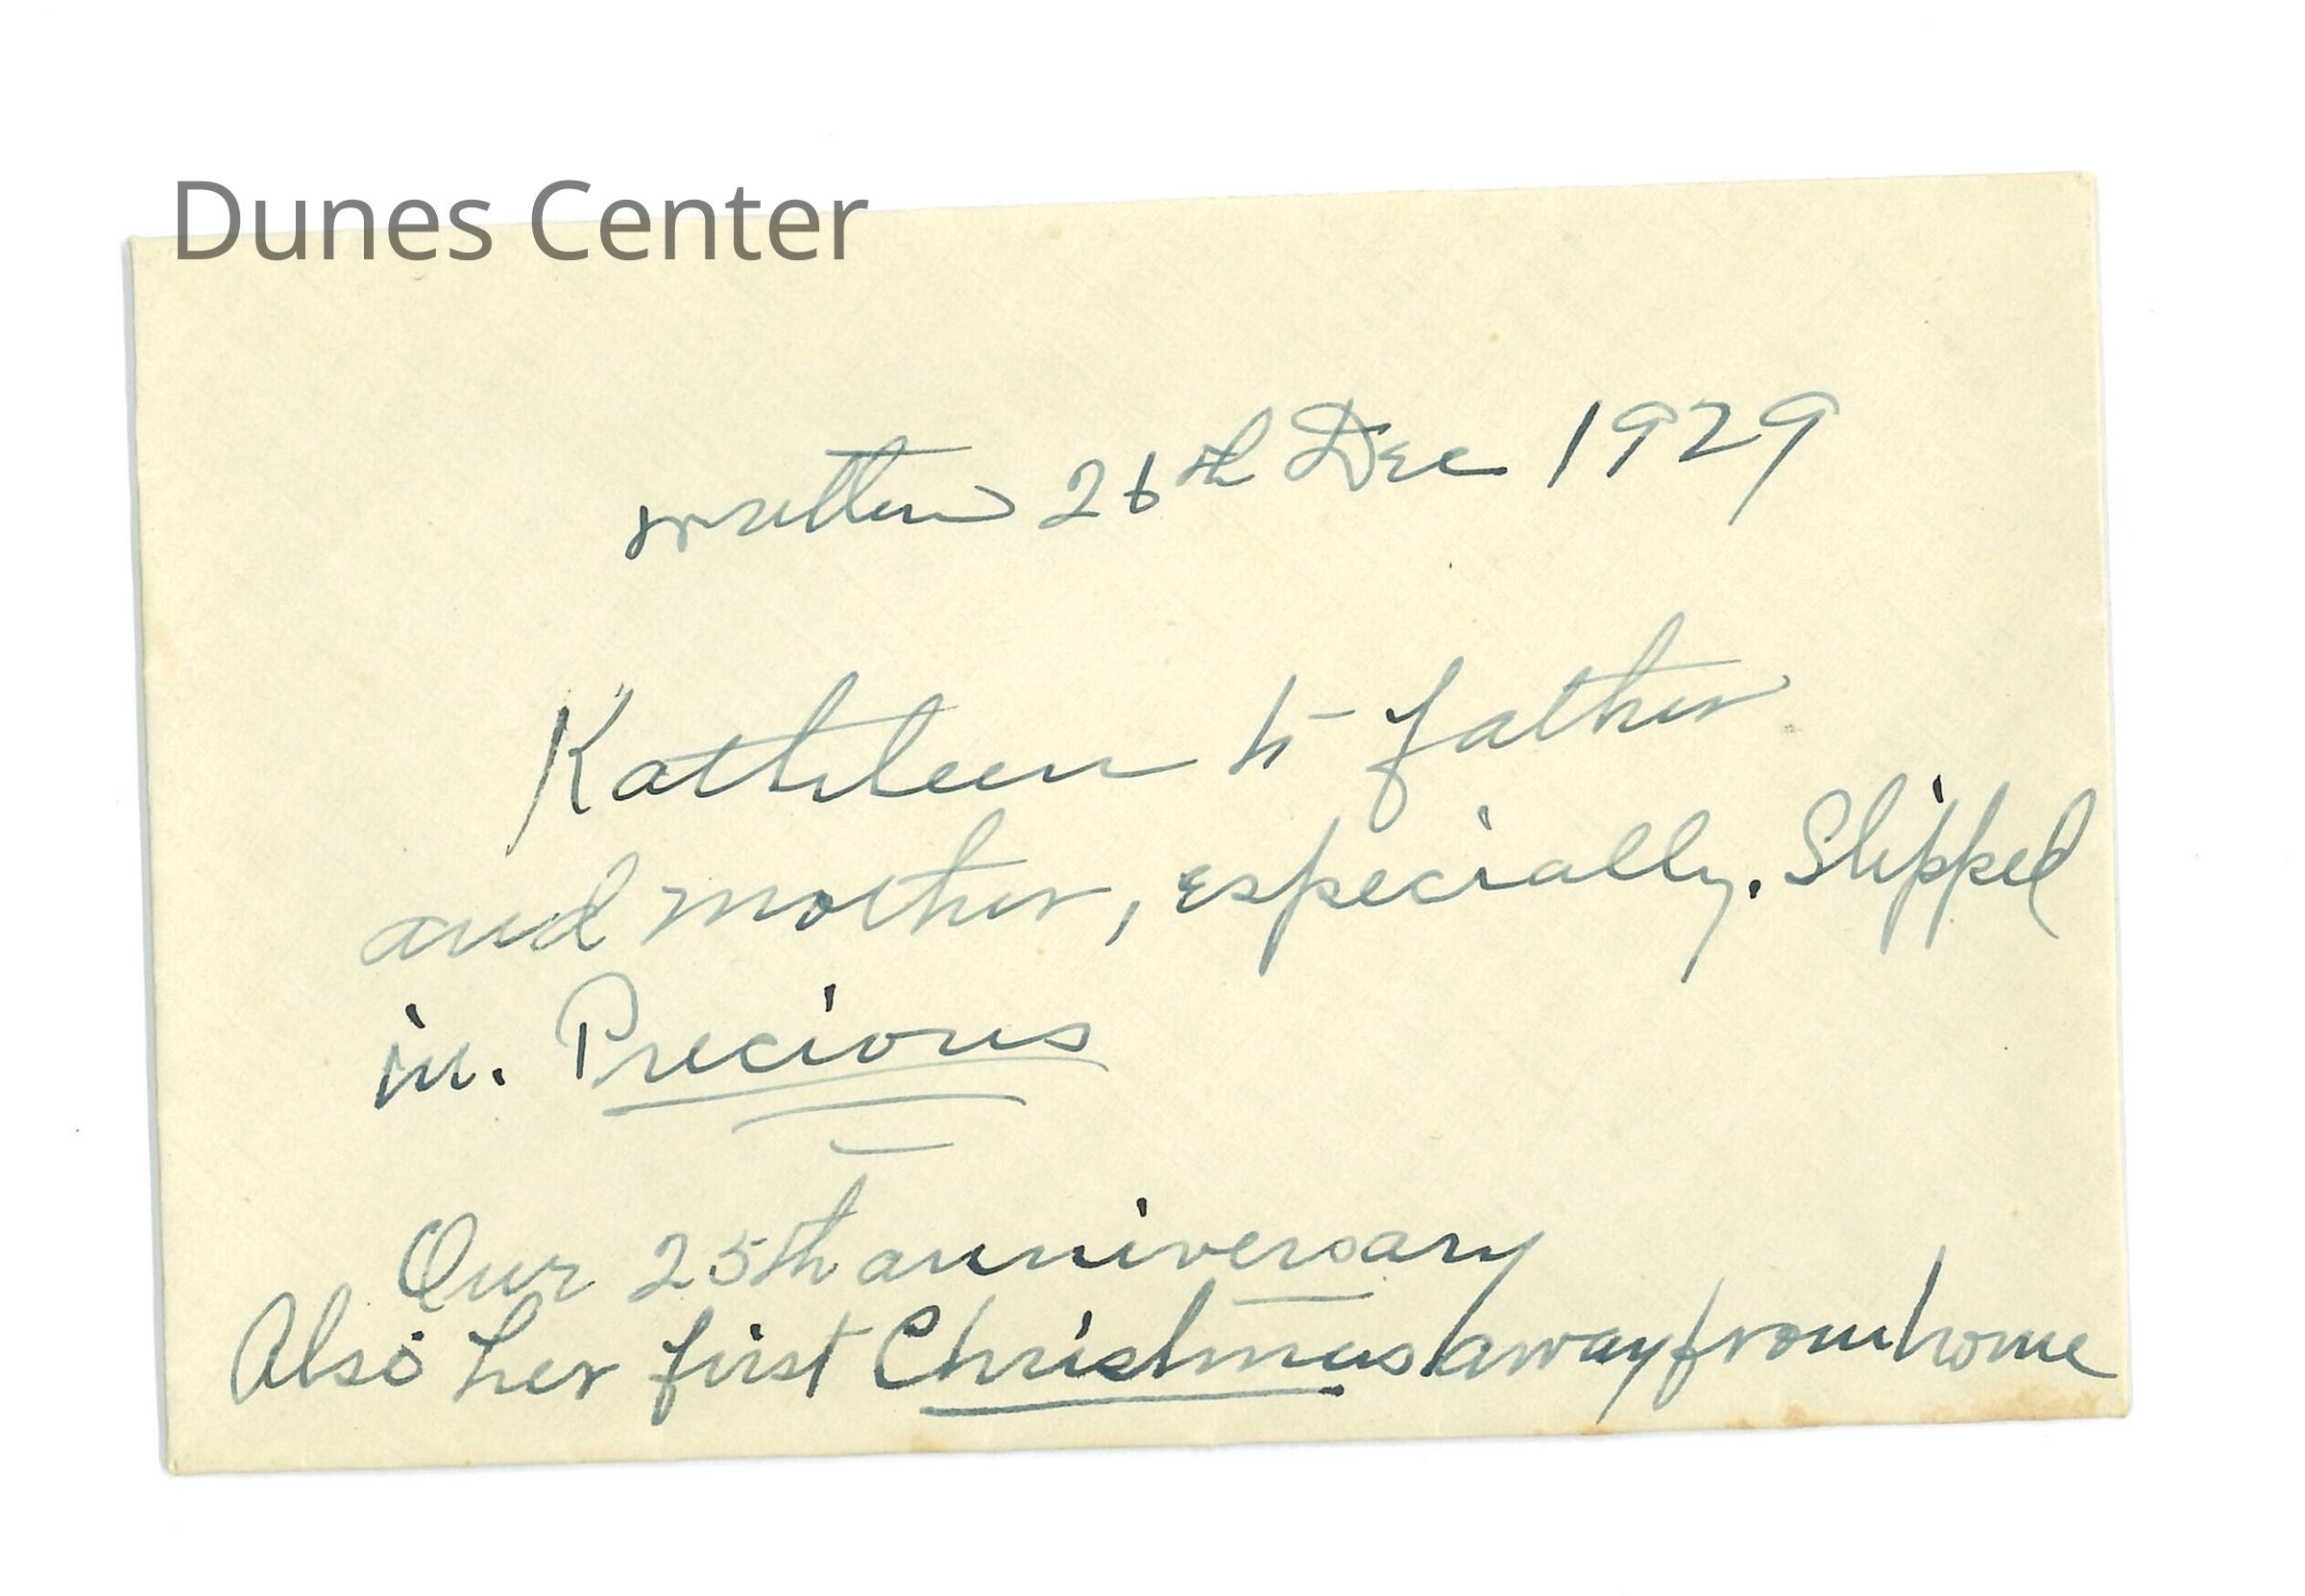 Dunes Center
written 26th Dec 1929
Kathleen to father
and mother, especially. Slipped
in. Precious
Our 25th anniversary
Also her first Christmas away from home